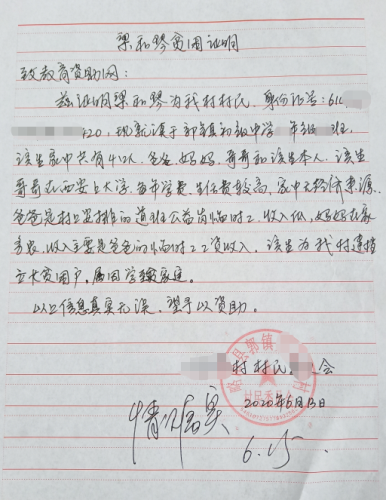 梁和琴贫困证明
致教育资助网：
兹证明梁和琴为我村村民，身份证号：611
120，现就读于郭镇初级中学 年级 班，
该生家中共有4口人，爸爸，妈妈，哥哥和该生本人，该生
哥哥在西安上大学，每年学费，生活费较高，家中无经济来源，
爸爸是村上安排的道班公益岗临时工，收入低，妈妈在家
务农，收入主要是爸爸的临时工工资收入，该生为我村建档
立卡贫困户，属因学致贫家庭。
以上信息真实无误，望予以资助。
村村民 会
2020年6月13日
情况属实
6.15
县郭镇 村
村民委员会